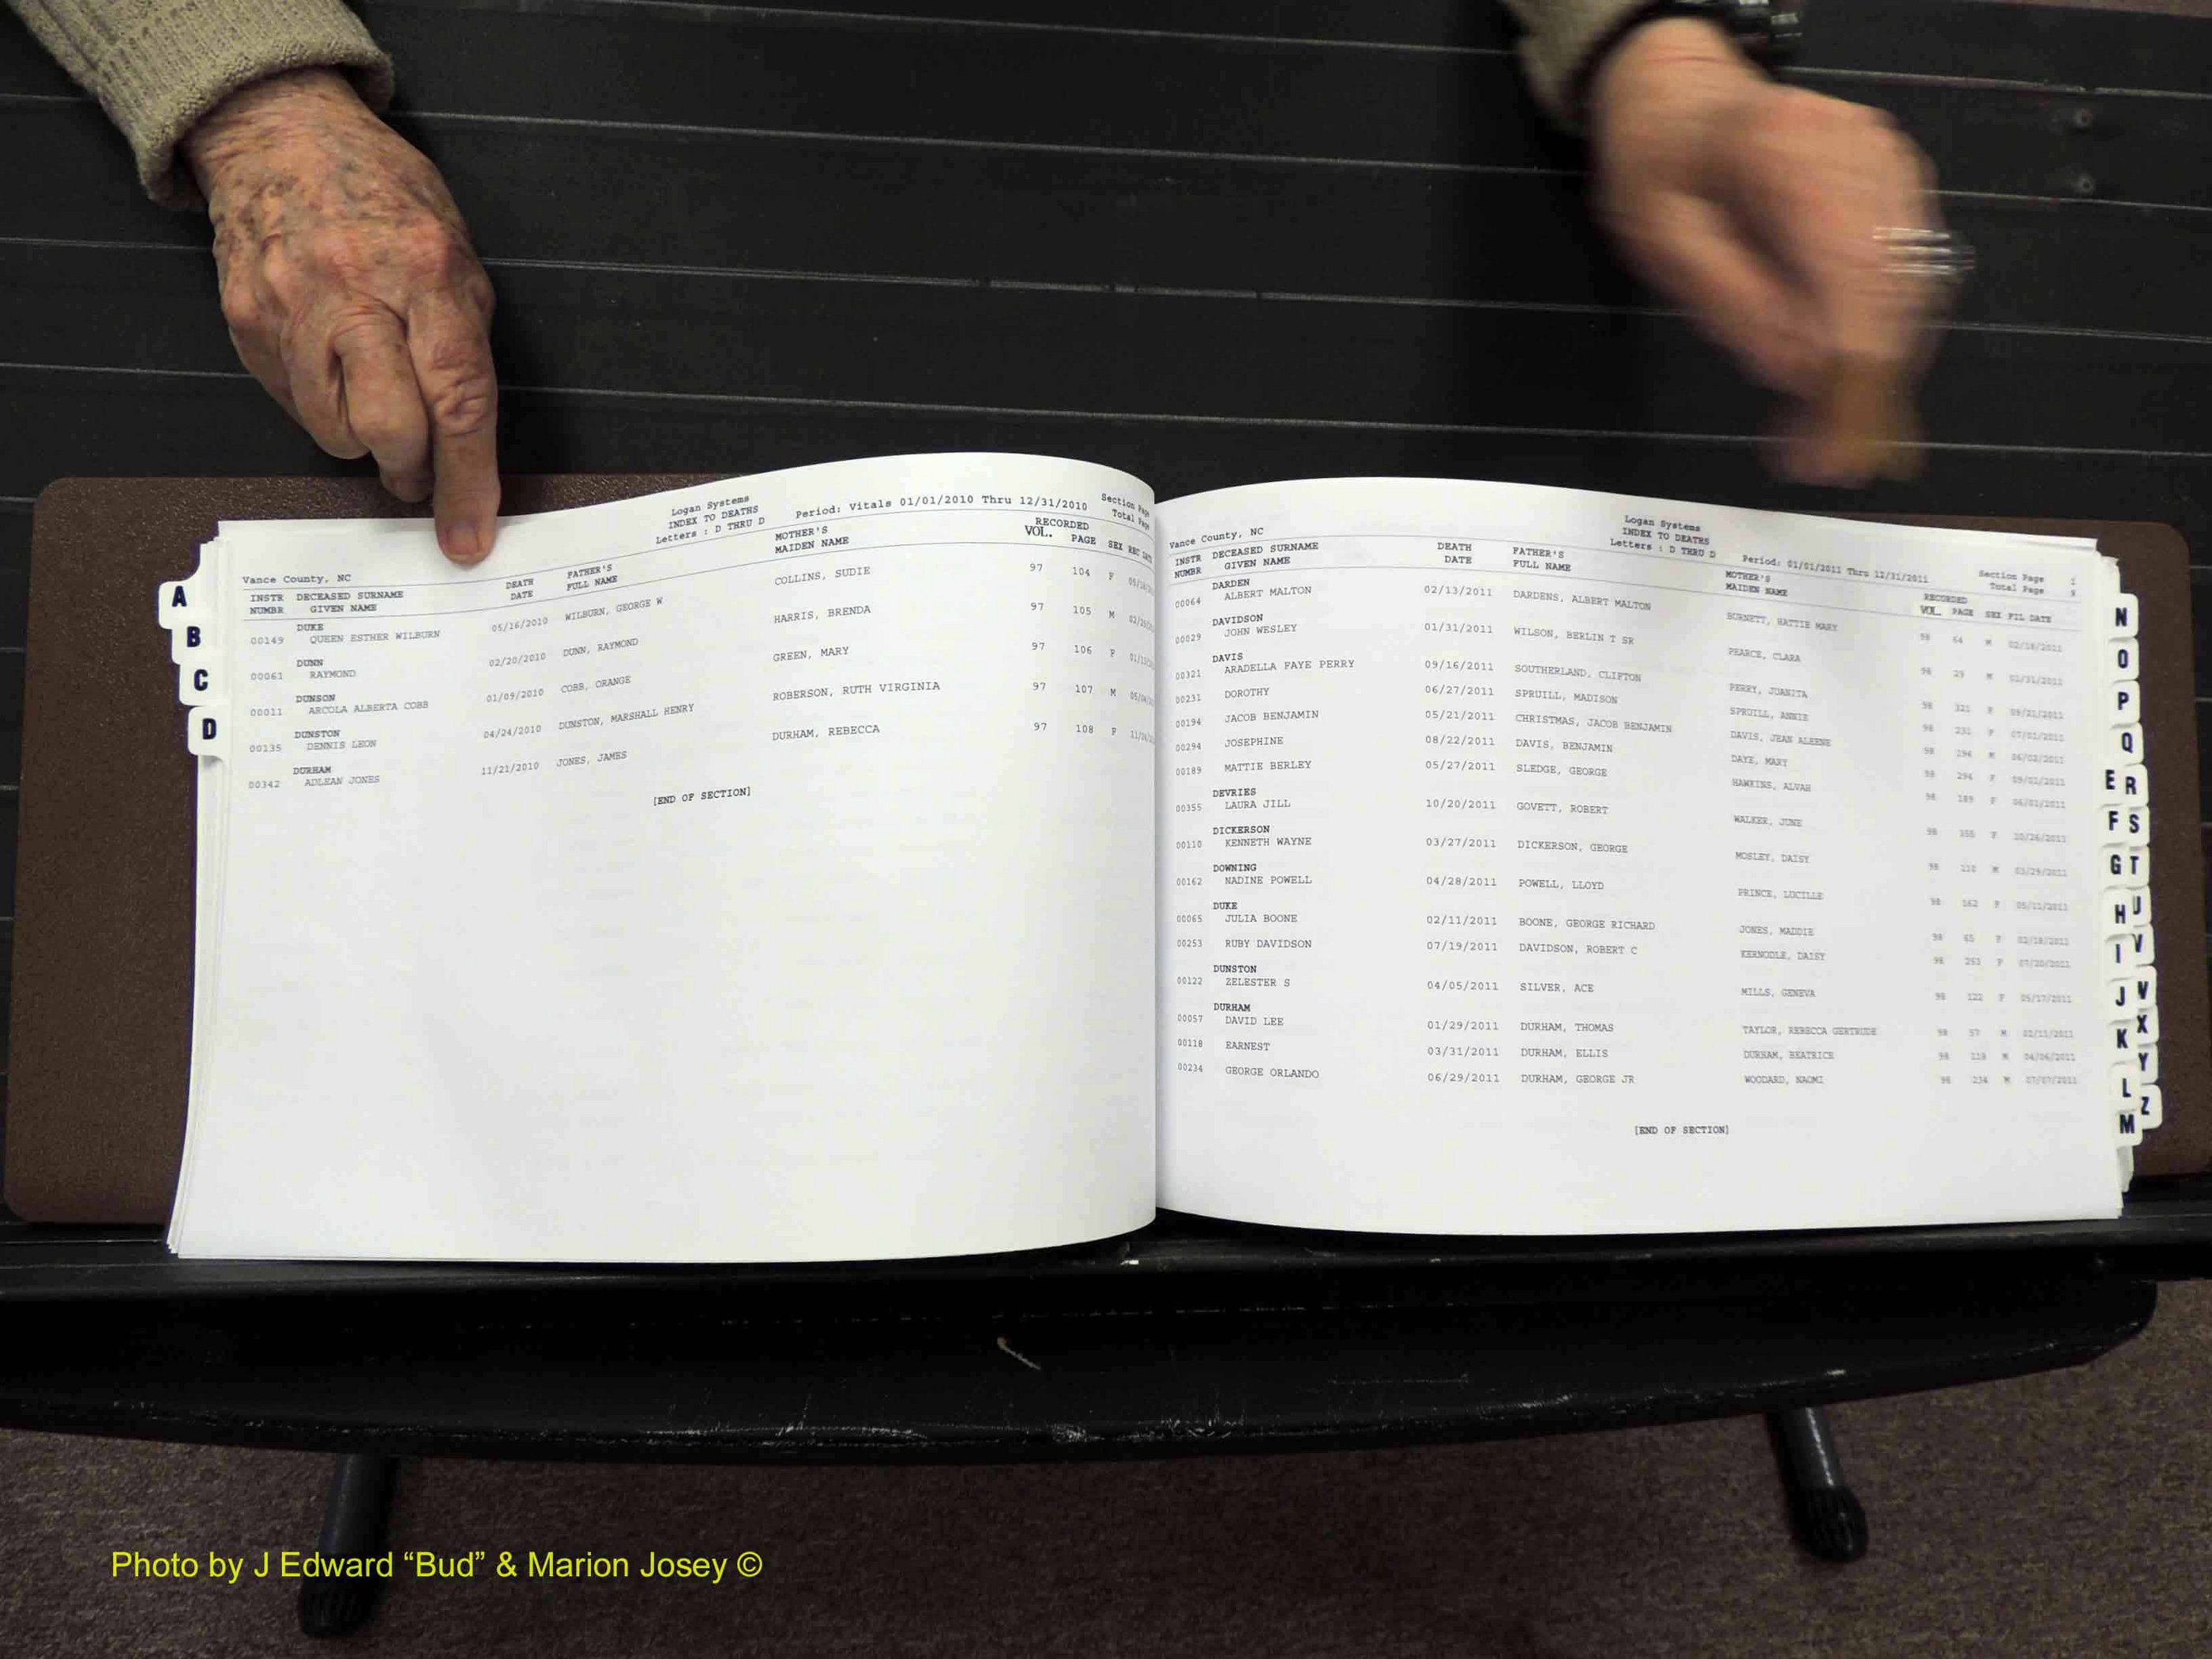 Logan Systems
INDEX TO DEATHS
Letters : D THRU D
Period: Vitals 01/01/2010 Thru 12/31/2010
Section Page
Total Page
Vance County, NC
INSTR NUMBR DECEASED SURNAME GIVEN NAME DEATH DATE FATHER'S FULL NAME MOTHER'S MAIDEN NAME RECORDED VOL. PAGE SEX REC DATE
DUKE
00149 QUEEN ESTHER WILBURN 05/16/2010 WILBURN, GEORGE W COLLINS, SUDIE 97 104 F
DUNN
00061 RAYMOND 02/20/2010 DUNN, RAYMOND HARRIS, BRENDA 97 105 M
DUNSON
00011 ARCOLA ALBERTA COBB 01/09/2010 COBB, ORANGE GREEN, MARY 97 106 F
DUNSTON
00135 DENNIS LEON 04/24/2010 DUNSTON, MARSHALL HENRY ROBERSON, RUTH VIRGINIA 97 107 M
DURHAM
00342 ADLEAN JONES 11/21/2010 JONES, JAMES DURHAM, REBECCA 97 108 F
[END OF SECTION]
A
B
C
D
Logan Systems
INDEX TO DEATHS
Letters : D THRU D
Period: 01/01/2011 Thru 12/31/2011
Section Page
Total Page
Vance County, NC
INSTR NUMBR DECEASED SURNAME GIVEN NAME DEATH DATE FATHER'S FULL NAME MOTHER'S MAIDEN NAME RECORDED VOL. PAGE SEX FIL DATE
DARDEN
00064 ALBERT MALTON 02/13/2011 DARDENS, ALBERT MALTON BURNETT, HATTIE MARY 98 64 M 02/18/2011
DAVIDSON
00029 JOHN WESLEY 01/31/2011 WILSON, BERLIN T SR PEARCE, CLARA 98 29 M 01/31/2011
DAVIS
00321 ARADELLA FAYE PERRY 09/16/2011 SOUTHERLAND, CLIFTON PERRY, JUANITA 98 321 F 09/21/2011
00231 DOROTHY 06/27/2011 SPRUILL, MADISON SPRUILL, ANNIE 98 231 F 07/01/2011
00194 JACOB BENJAMIN 05/21/2011 CHRISTMAS, JACOB BENJAMIN DAVIS, JEAN ALEENE 98 194 M 06/02/2011
00294 JOSEPHINE 08/22/2011 DAVIS, BENJAMIN DAYE, MARY 98 294 F 09/01/2011
00189 MATTIE BERLEY 05/27/2011 SLEDGE, GEORGE HAWKINS, ALVAH 98 189 F 06/01/2011
DEVRIES
00355 LAURA JILL 10/20/2011 GOVETT, ROBERT WALKER, JUNE 98 355 F 10/26/2011
DICKERSON
00110 KENNETH WAYNE 03/27/2011 DICKERSON, GEORGE MOSLEY, DAISY 98 110 M 03/29/2011
DOWNING
00162 NADINE POWELL 04/28/2011 POWELL, LLOYD PRINCE, LUCILLE 98 162 F 05/11/2011
DUKE
00065 JULIA BOONE 02/11/2011 BOONE, GEORGE RICHARD JONES, MADDIE 98 65 F 02/18/2011
00253 RUBY DAVIDSON 07/19/2011 DAVIDSON, ROBERT C KERNODLE, DAISY 98 253 F 07/20/2011
DUNSTON
00122 ZELESTER S 04/05/2011 SILVER, ACE MILLS, GENEVA 98 122 F 05/17/2011
DURHAM
00057 DAVID LEE 01/29/2011 DURHAM, THOMAS TAYLOR, REBECCA GERTRUDE 98 57 M 02/11/2011
00118 EARNEST 03/31/2011 DURHAM, ELLIS DURHAM, BEATRICE 98 M 04/06/2011
00234 GEORGE ORLANDO 06/29/2011 DURHAM, GEORGE JR WOODARD, NAOMI 98 234 M 07/07/2011
[END OF SECTION]
N
O
P
Q
E R
F S
G T
H U
I V
J W
K X
Y
L Z
M
Photo by J Edward “Bud” & Marion Josey ©